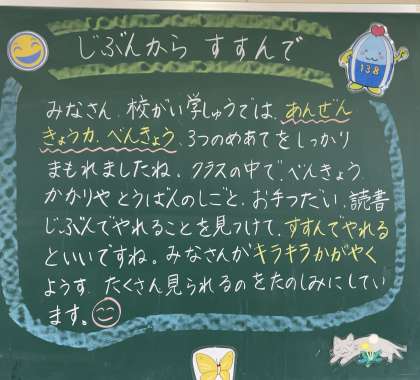 じぶんから すすんで
138
みなさん、校がい学しゅうでは、あんぜん
きょう力、べんきょう、3つのめあてをしっかり
まもれましたね。クラスの中で、べんきょう、
かかりや とうばんのしごと、お手つだい、読書
じぶんでやれることを見つけて、すすんでやれる
といいですね。みなさんがキラキラかがやく
ようす、たくさん見られるのをたのしみにしてい
ます。